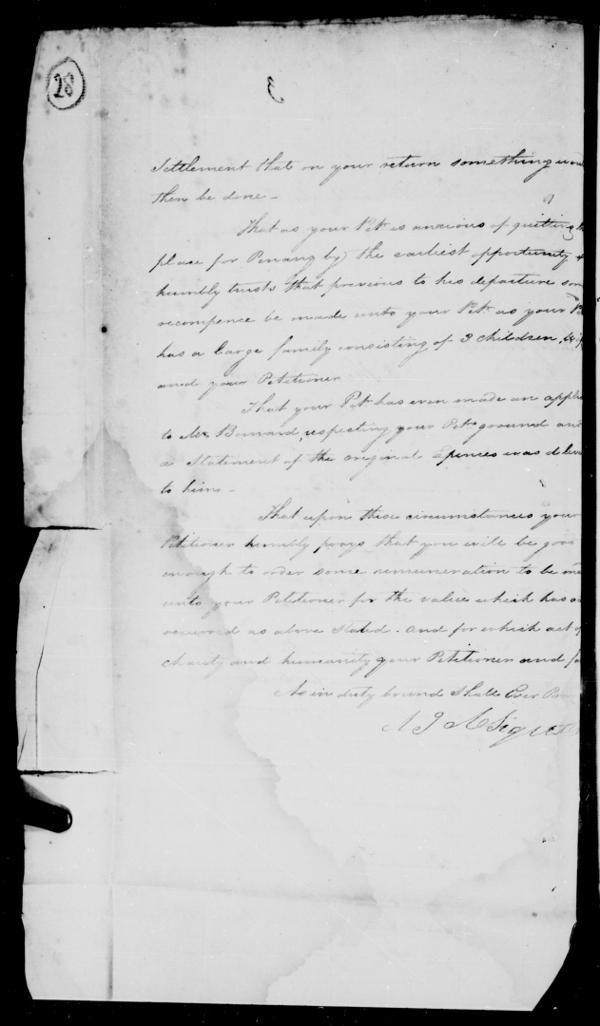 28
3
Settlement that on your return something
then be done -
That as your Petr. is anxious of quitting
place for Penang by the earliest opportunity &
humbly trusts that previous to his departure som
recompence be made unto your Petr. as your
has a large family consisting of 3 Children,
and your Petitioner
That your Petr. has even made an applic
to Mr. Bernard, respecting your Petrs. ground and
a Statement of the original Expences was deliv
to him -
That upon these circumstances your
Petitioner humbly prays that you will be goo
enough to order some remuneration to be
unto your Petitioner for the value which has
occurred as above stated. And for which act of
charity and humanity your Petitioner and fa
As in duty bound Shall Ever